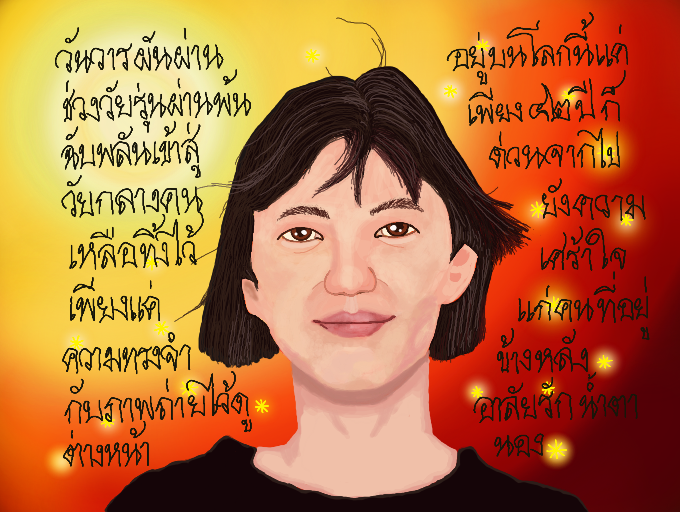 วันวารผันผ่าน
ช่วงวัยรุ่นผ่านพ้น
ฉับพลันเข้าสู่
วัยกลางคน
เหลือทิ้งไว้
เพียงแค่
ความทรงจำ
กับภาพถ่ายไว้ดู
ต่างหน้า
อยู่บนโลกนี้แค่
เพียง ๔๒ ปี ก็
ด่วนจากไป
ยังความ
เศร้าใจ
แก่คนที่อยู่
ข้างหลัง
อาลัยรัก น้ำตา
นอง